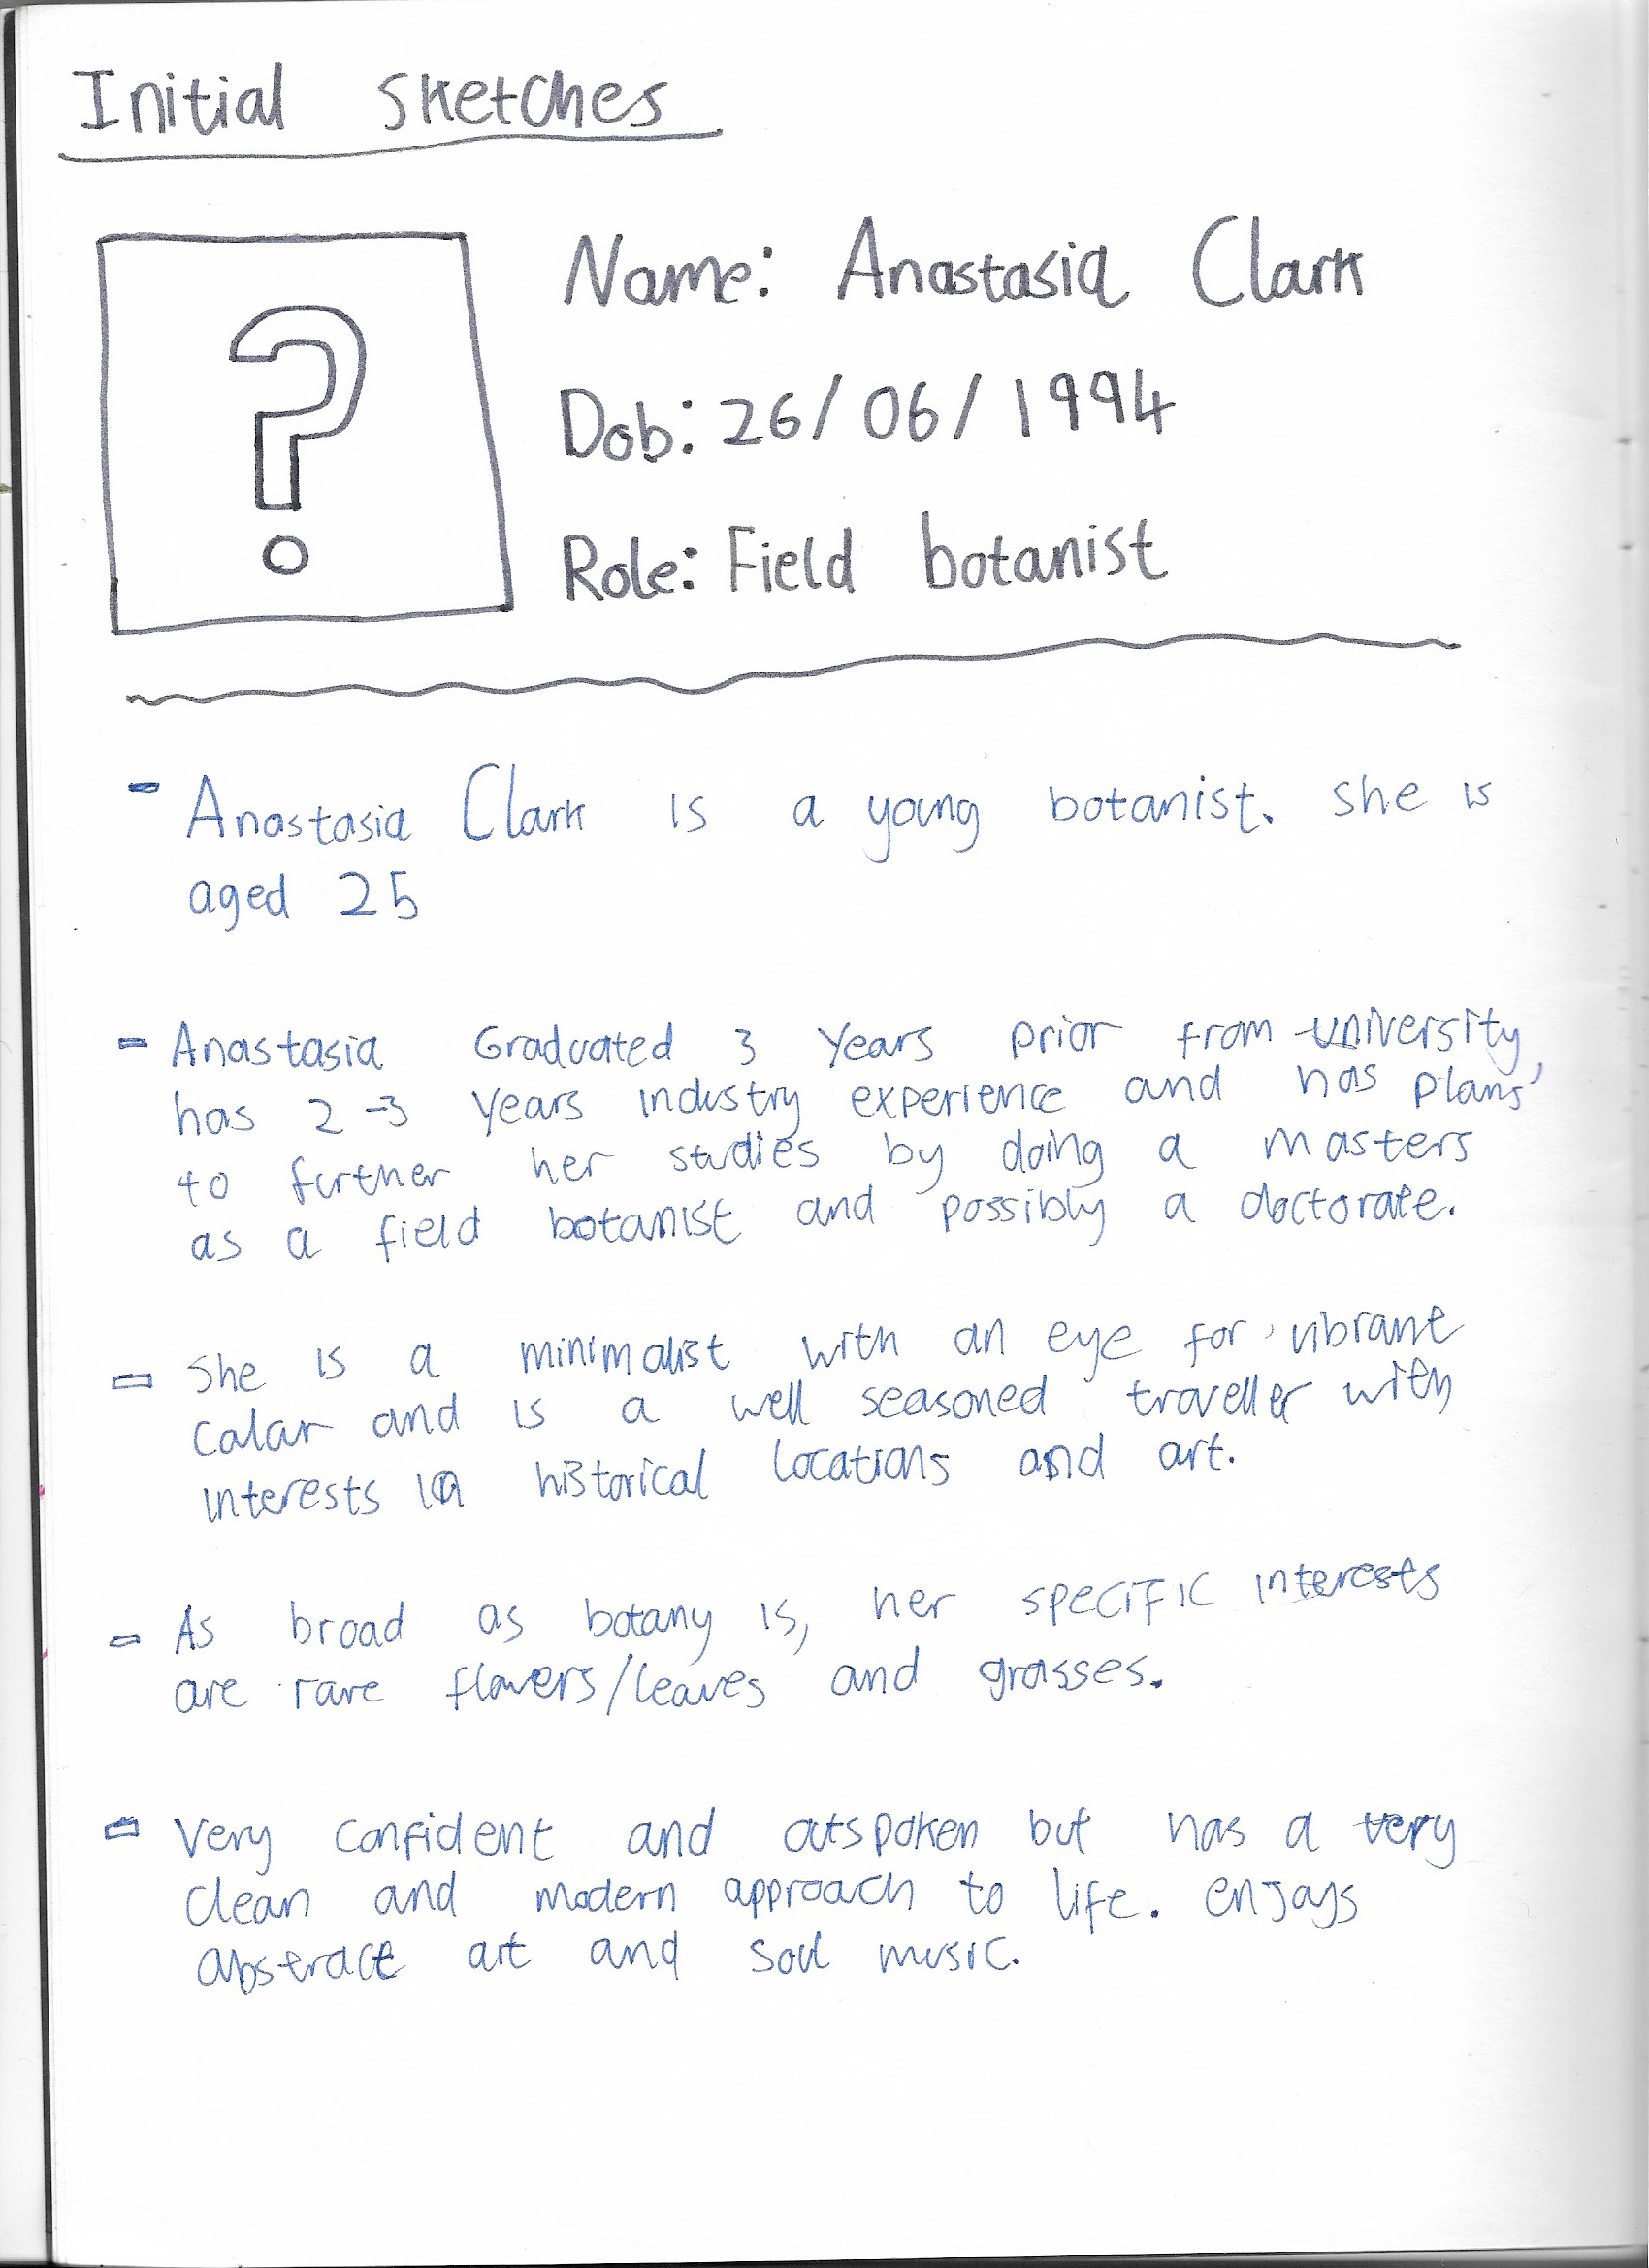 Initial Sketches
?
Name: Anastasia Clark
Dob: 26/06/1994
Role: Field botanist
- Anastasia Clark is a young botanist. She is
aged 25
- Anastasia Graduated 3 Years prior from university,
has 2-3 Years industry experience and has plans
to further her studies by doing a masters
as a field botanist and possibly a doctorate.
- She is a minimalist with an eye for vibrant
colour and is a well seasoned traveller with
interests in historical locations and art.
- As broad as botany is, her specific interests
are rare flowers/leaves and grasses.
- Very confident and outspoken but has a very
clean and modern approach to life. enjoys
abstract art and soul music.